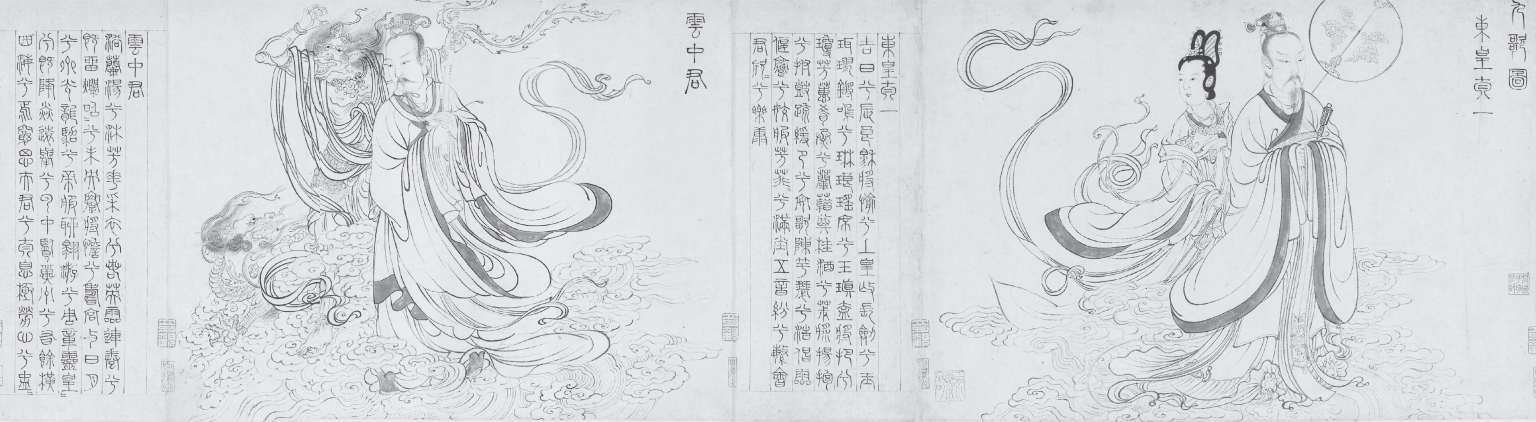 九歌圖
東皇太一
東皇太一
吉日兮辰良穆將愉兮上皇撫長劍兮玉
珥璆鏘鳴兮琳琅瑤席兮玉瑱盍將把兮
瓊芳蕙肴蒸兮蘭藉奠桂酒兮椒漿揚枹
兮拊鼓疏緩節兮安歌陳竽瑟兮浩倡靈
偃蹇兮姣服芳菲〻兮滿堂五音紛兮繁會
君欣〻兮樂康
雲中君
雲中君
浴蘭湯兮沐芳華采衣兮若英靈連蜷兮
既留爛昭〻兮未央蹇將憺兮壽宮與日月
兮齊光龍駕兮帝服聊翱遊兮周章靈皇〻
兮既降猋遠舉兮雲中覽冀州兮有餘橫
四海兮焉窮思夫君兮太息極勞心兮忡〻